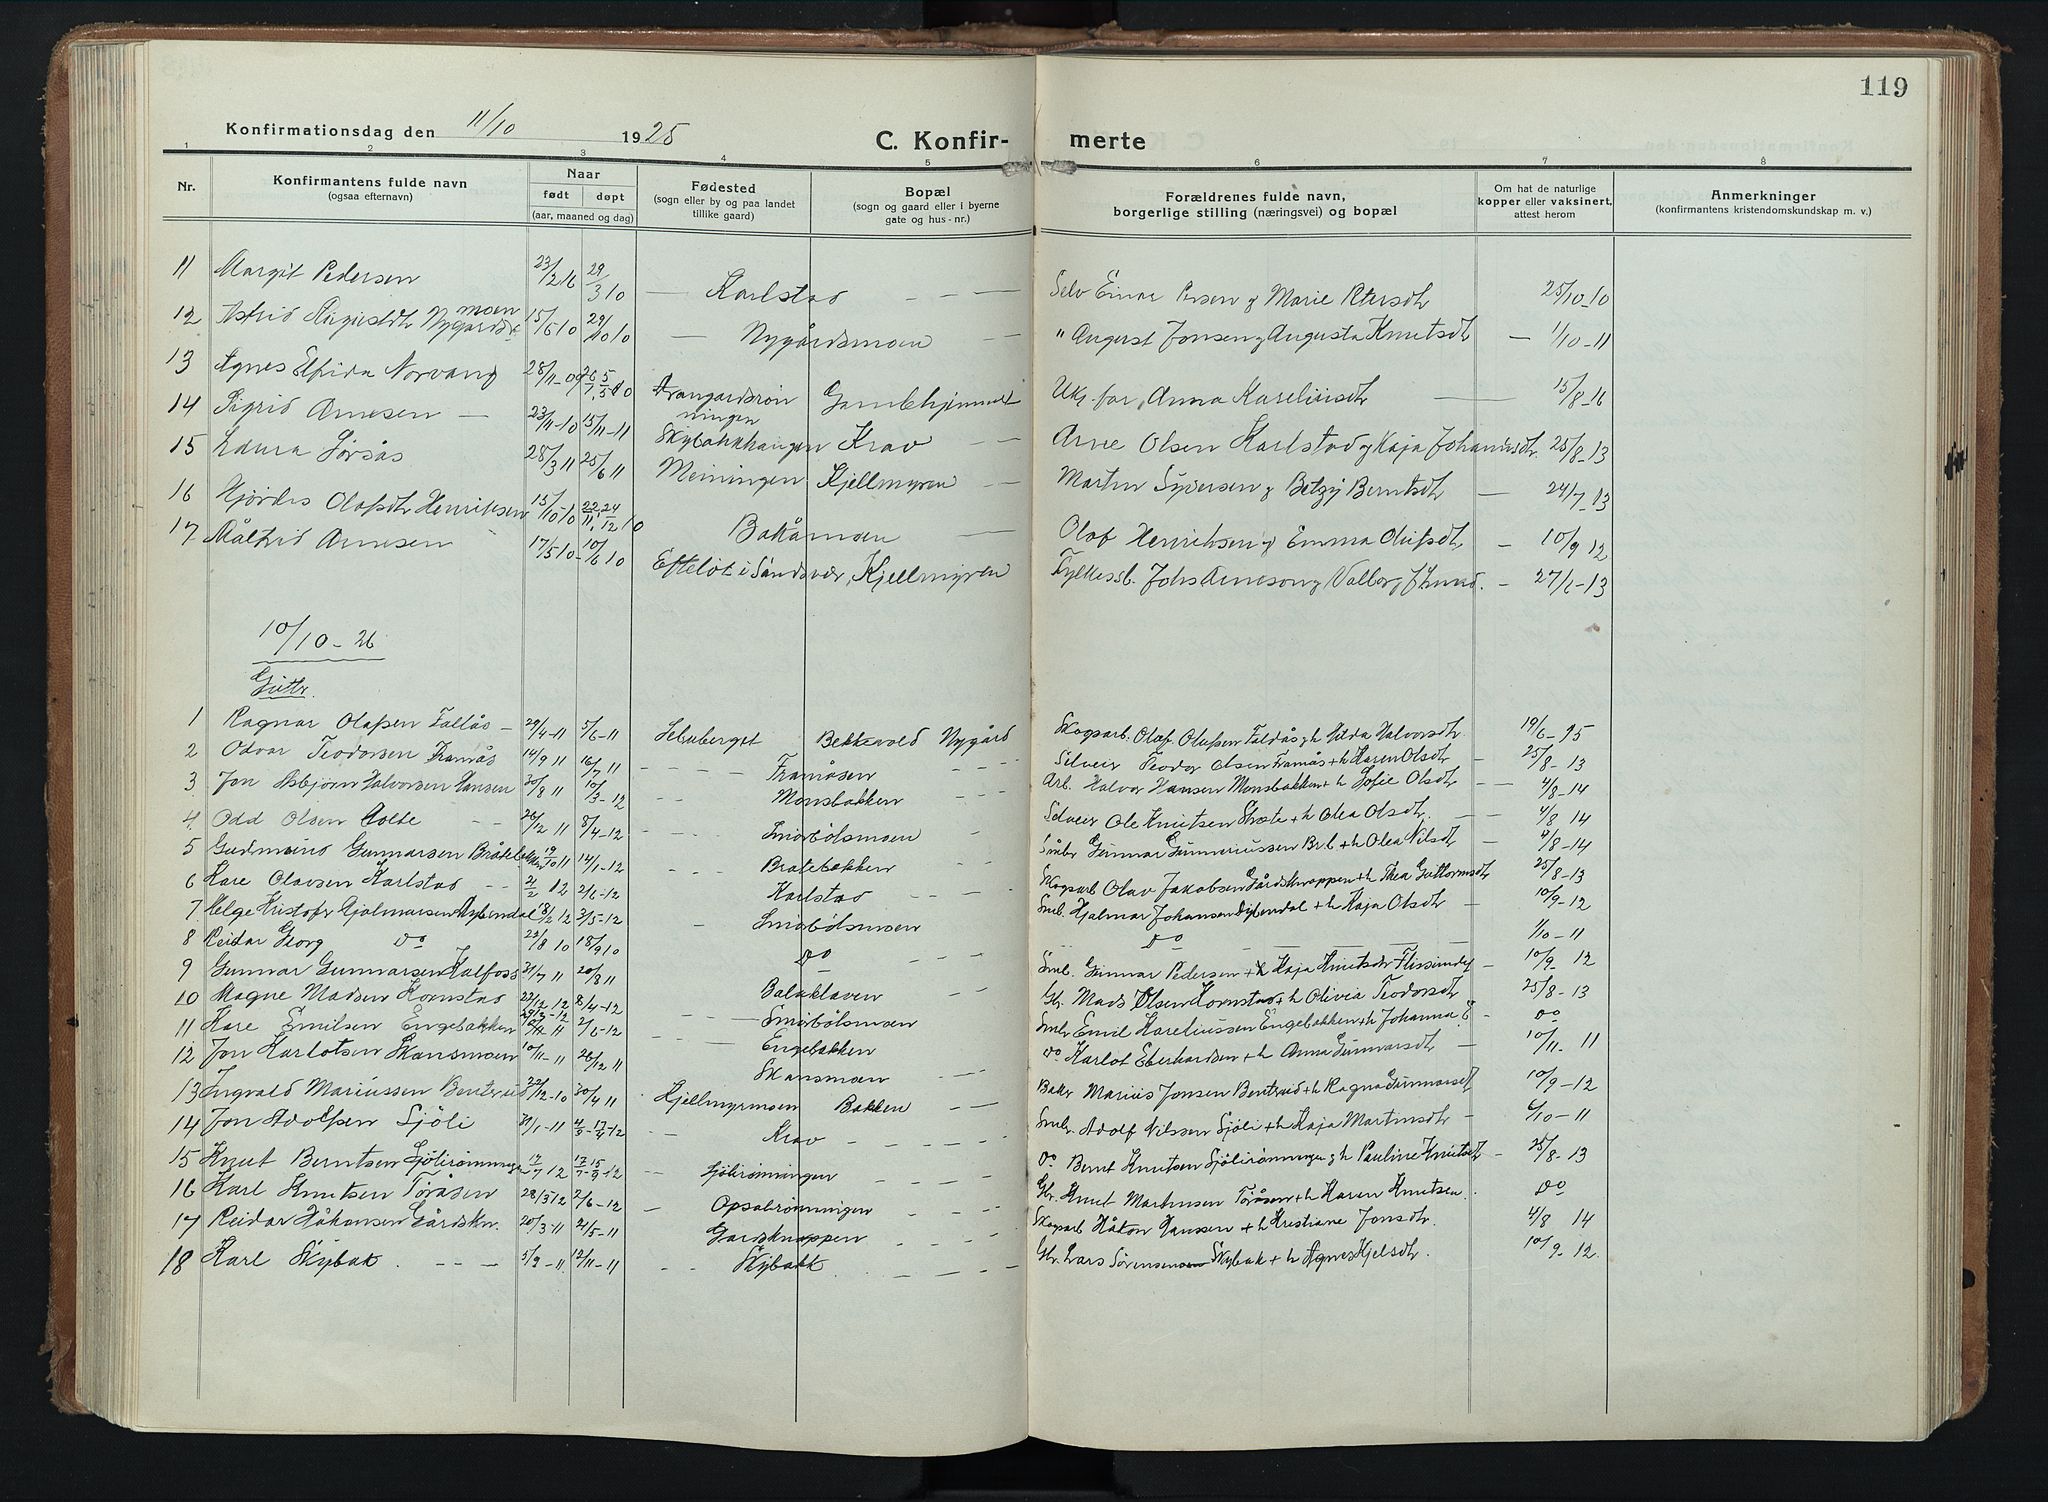 119
Konfirmationsdag den 11/10 1925
C. Konfir- merte
1 2 3 4 5 6 7 8
Nr. Konfirmantens fulde navn (ogsaa efternavn) Naar født døpt (aar, maaned og dag) Fødested (sogn eller by og paa landet tillike gaard) Bopæl (sogn og gaard eller i byerne gate og hus-nr.) Forældrenes fulde navn, borgerlige stilling (næringsvei) og bopæl Om hat de naturlige kopper eller vaksinert, attest herom Anmerkninger (konfirmantens kristendomskundskap m. v.)
11 Margit Pedersen 29/3 10 — Karlstad — — — Selv Einar Marie 25/10-10
12 Astrid Nygårdsmoen — Nygårdsmoen — — " August Jonsen og Augusta Knutsdtr — 1/10-11
13 Agnes Norvang 28/11-09 Gamlehjemmet for Anna 15/8-16
14 Sigrid Arnesen — 23/11-10 15/11-11 Krav — — Arne Olsen Karlstad og Kaja 25/8-13
15 Laura Sørsås 28/3 11 25/6 11 Meiningen Kjellmyren — Martin Syversen og Betzy Berntsdtr — 24/7-13
16 Hjørdis Olafsdtr Henriksen 15/10-10 22/11, 24/12 10 Bakåmoen — Olaf Henriksen og Emma — 10/9 12
17 Måltrid Arnesen 17/5 10- 10/6 10 Efteløt i Sandsvær, Kjellmyren Johs Arneson og Valborg — 27/1-13
10/10-26
Gutter.
1 Ragnar Olafsen Fallås — 29/4-11 5/6-11 Bekkevold Nygård Skogsarb. Olaf Hilda Halvorsdtr
2 Odvar Teodorsen Framås 14/9 11 16/7 11 — — — Framåsen — — — Selveier Teodor Olsen Framås + h Karen Olsdtr — 25/8-13
3 Jon Asbjørn Halvorsen Hansen 30/8 11 10/3-12 — — Monsbakken — — — Arb. Halvor Hansen Monsbakken + h Sofie Olsdtr — — 4/8-14
4. Odd Olsen — — 26/12 11 8/4-12 — — Smørbølsmoen — — Selveier Ole Knutsen + h Olea Olsdtr. — 4/8 14
5 Gudmund Gunnarsen 19/10 11 14/1-12 — — Bråtebakken — — Småbr Gunnar Br.b + h Olea Nilsdtr — 4/8-14
6 Kare Olavsen Karlstad — — 2/6-12 — — Karlstad — — — Skogsarb Olav Jakobsen Gårdsknappen + h Thea Guttormsdtr 25/8-13
7 Helge Kristofer Hjalmarsen 18/2 12 3/5-12 — Smørbølsmoen Smb. Hjalmar Johansen + h Kaja Olsdtr — 10/9-12
8 Reidar Georg do 23/8 10 18/9 10 do — — — do — — — — 1/10-11
9 Gunnar Gunnarsen Kalfoss 31/7 11 20/8 11 Balaklaven — — Smb. Gunnar Pedersen + h Kaja Knutsdtr — 10/9-12
10 Magne Madsen Kornstad 8/4-12 — — — Smørbølsmoen Gbr. Mads Olsen Kornstad + h Olivia Teodorsdtr 25/8-13
11 Kare Emilsen Engebakken 2/6-12 — — — Engebakken Smbr Emil Kareliussen Engebakken + h Johanna — do
12 Jon Karlotsen Skansmoen 10/11-11 26/12 11 Skansmoen — — do Karlot Eberhardsen + h Anna Gunnarsdtr — 10/11-11
13 Ingvald Mariussen Benterud 22/12-10 30/4 11 Kjellmyrmoen Bakken — — Baker Marius Jonsen Benterud + h Ragna Gunnarsdtr 10/9-12
14 Jon Adolfsen Sjöli 31/1-11 — Krav — — — — Smbr. Adolf Nilssen Sjöli + h Kaja Martinsdtr — 6/10-11
15 Knut Berntsen Sjölirønningen 17/7 12 — Sjölirønningen — — — do Bernt Knutsen Sjölirønningen og h Pauline Knutsdtr — 25/8-13
16 Karl Knutsen Toråsen 28/3 12 2/6-12 — Opsalrønningen — — — Gbr. Knut Martinsen Toråsen + h Karen Knutsen. do
17 Reidar Håkansen Gårdskn. 20/3-11 21/5-11 Gardsknappen — — — Skogsarb Håkon Hanssen + h Kristiane Jonsdtr. 4/8 14
18 Karl Skybak . — — — 5/9-11 12/11-11 — — Skybakk — — — Gbr. Lars Sörensen Skybak + h Agnes Kjelsdtr. 10/9-12.